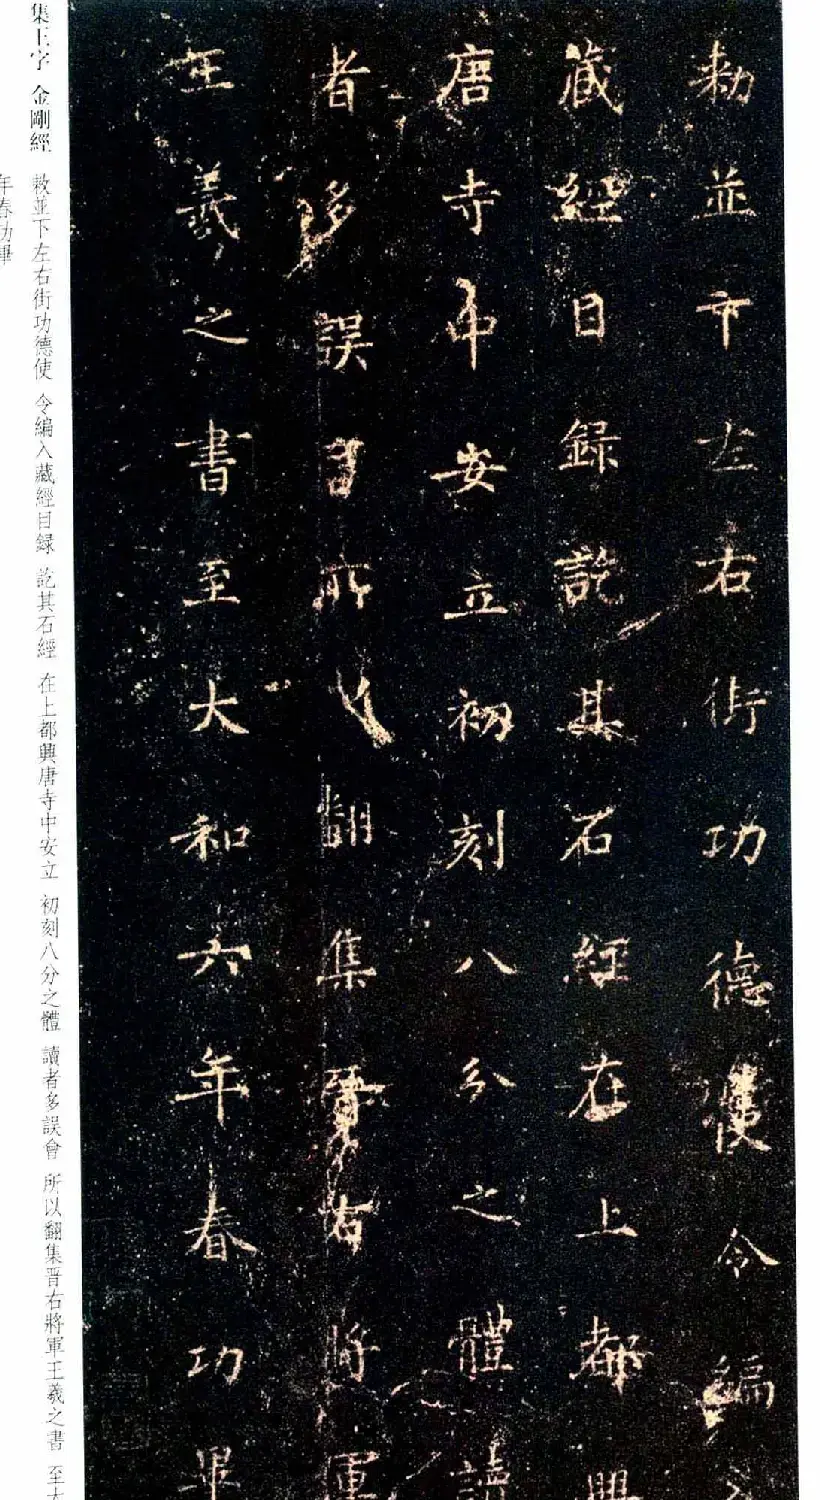 勅並下左右街功德使令編入
藏經目錄訖其石經在上都興
唐寺中安立初刻八分之體讀
者多誤會所以翻集晉右將軍
王羲之書至大和六年春功畢
集王字 金剛經
敕並下左右街功德使 令編入藏經目録 訖其石經 在上都興唐寺中安立 初刻八分之體 讀者多誤會 所以翻集晉右將軍王羲之書 至大
年春功畢